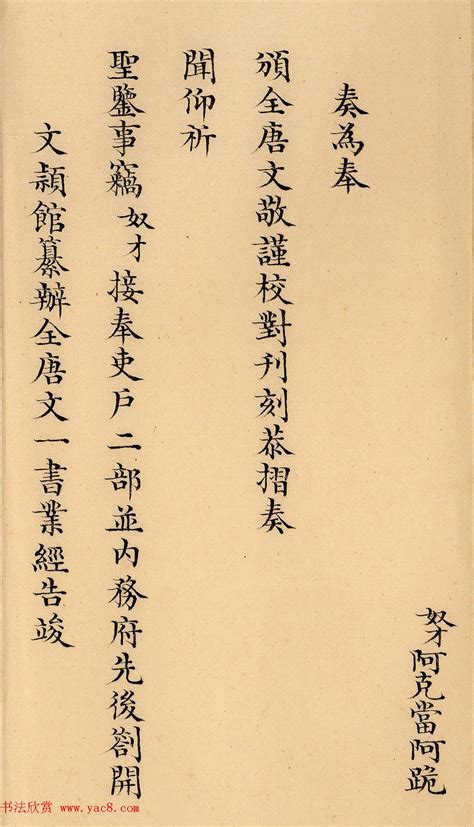 奴才阿克當阿跪
奏為奉
頒全唐文敬謹校對刊刻恭摺奏
聞仰祈
聖鑒事竊奴才接奉吏戶二部並內務府先後劄開
文頴館纂辦全唐文一書業經告竣
书法欣赏 www.yac8.com